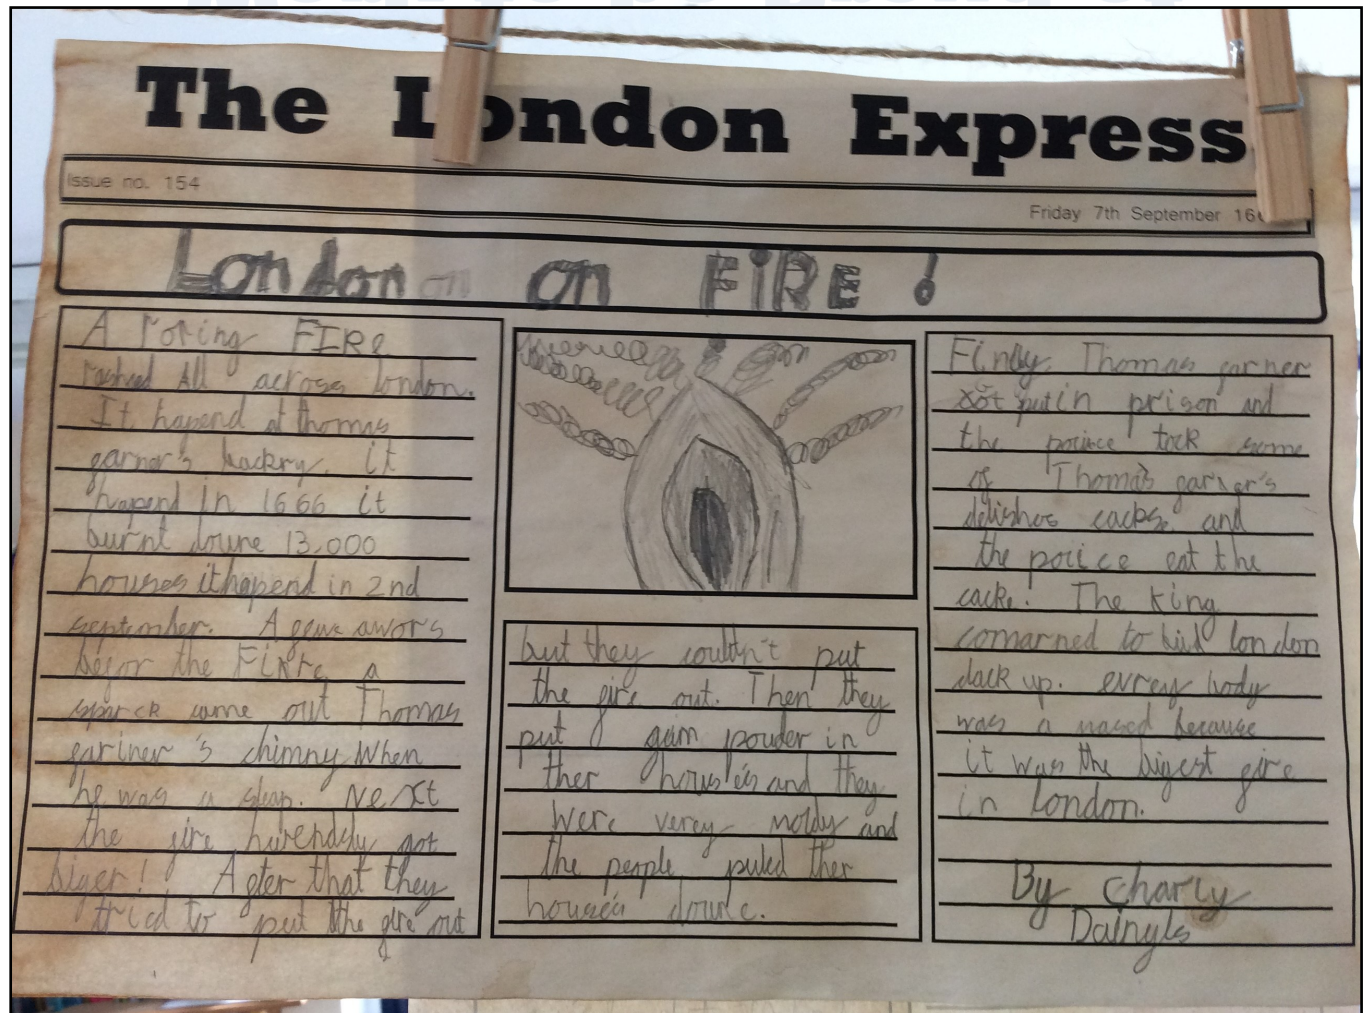 The London Express
Issue no. 154
Friday 7th September 16
London on on FIRE!
A roring FIRE
rashed All across london.
It hapend at thomas
garner's backry. it
hapend in 1666 it
burnt doune 13,000
houses ithapend in 2nd
september. A gew awors
begor the FIRE a
sparck came out Thomas
gariner's chimny When
he was a sleap. Next
the gire got
biger! Agter that they
tried to put the gire out
but they couldn't put
the gire out. Then they
put gun pouder in
ther houses and they
were verey moldy and
the people puled ther
houses doune.
Finaly Thomas garner
got put in prison and
the poince tock some
of Thomas garner's
delishos cackse and
the poiice eat the
cacke! The King
comarned to biul london
dack up. evrey body
was a mased because
it was the bigest gire
in london.
By Charly
Dainyls